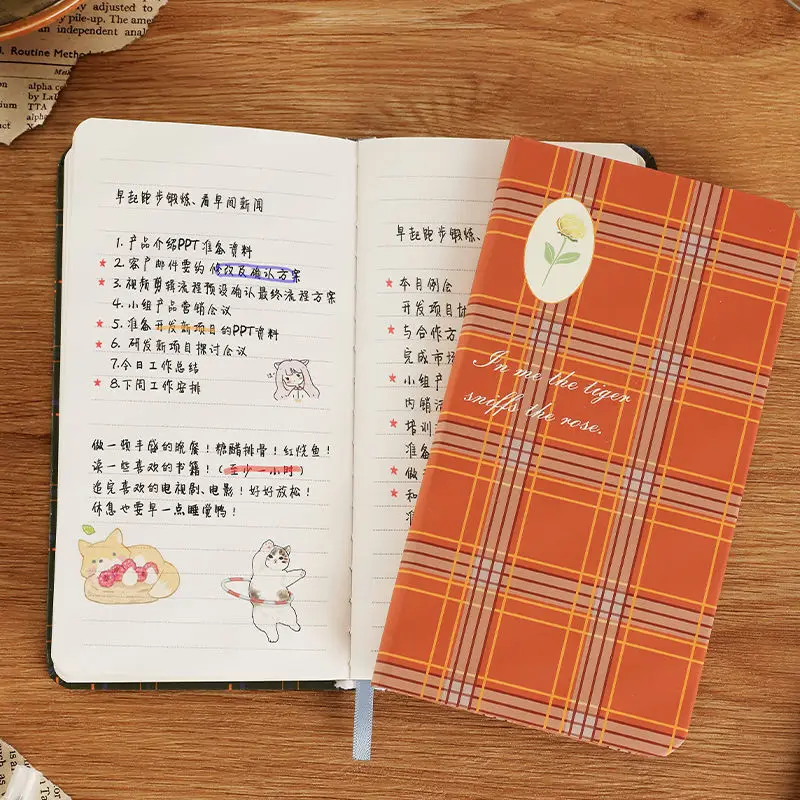 y adjusted to
y pile-up. The ame
an independent anal
Routine Method
alpha c
by Lal
TTA
alpha
早起跑步锻炼、看早间新闻
1. 产品介绍PPT准备资料
★ 2. 客户邮件要约修改及确认方案
★ 3. 视频剪辑流程预设确认最终流程方案
4. 小组产品营销会议
★ 5. 准备开发新项目的PPT资料
★ 6. 研发新项目探讨会议
7. 今日工作总结
★ 8. 下周工作安排
做一顿丰盛的晚餐！糖醋排骨！红烧鱼！
读一些喜欢的书籍！（至少一小时）
追完喜欢的电视剧、电影！好好放松！
休息也要早一点睡觉鸭！
早起跑步锻炼、
★ 本月例会
开发项目计
★ 与合作方
完成市场
★ 小组产
内销
★ 培训
准备
★ 做
★ 和
In me the tiger
sniffs the rose.